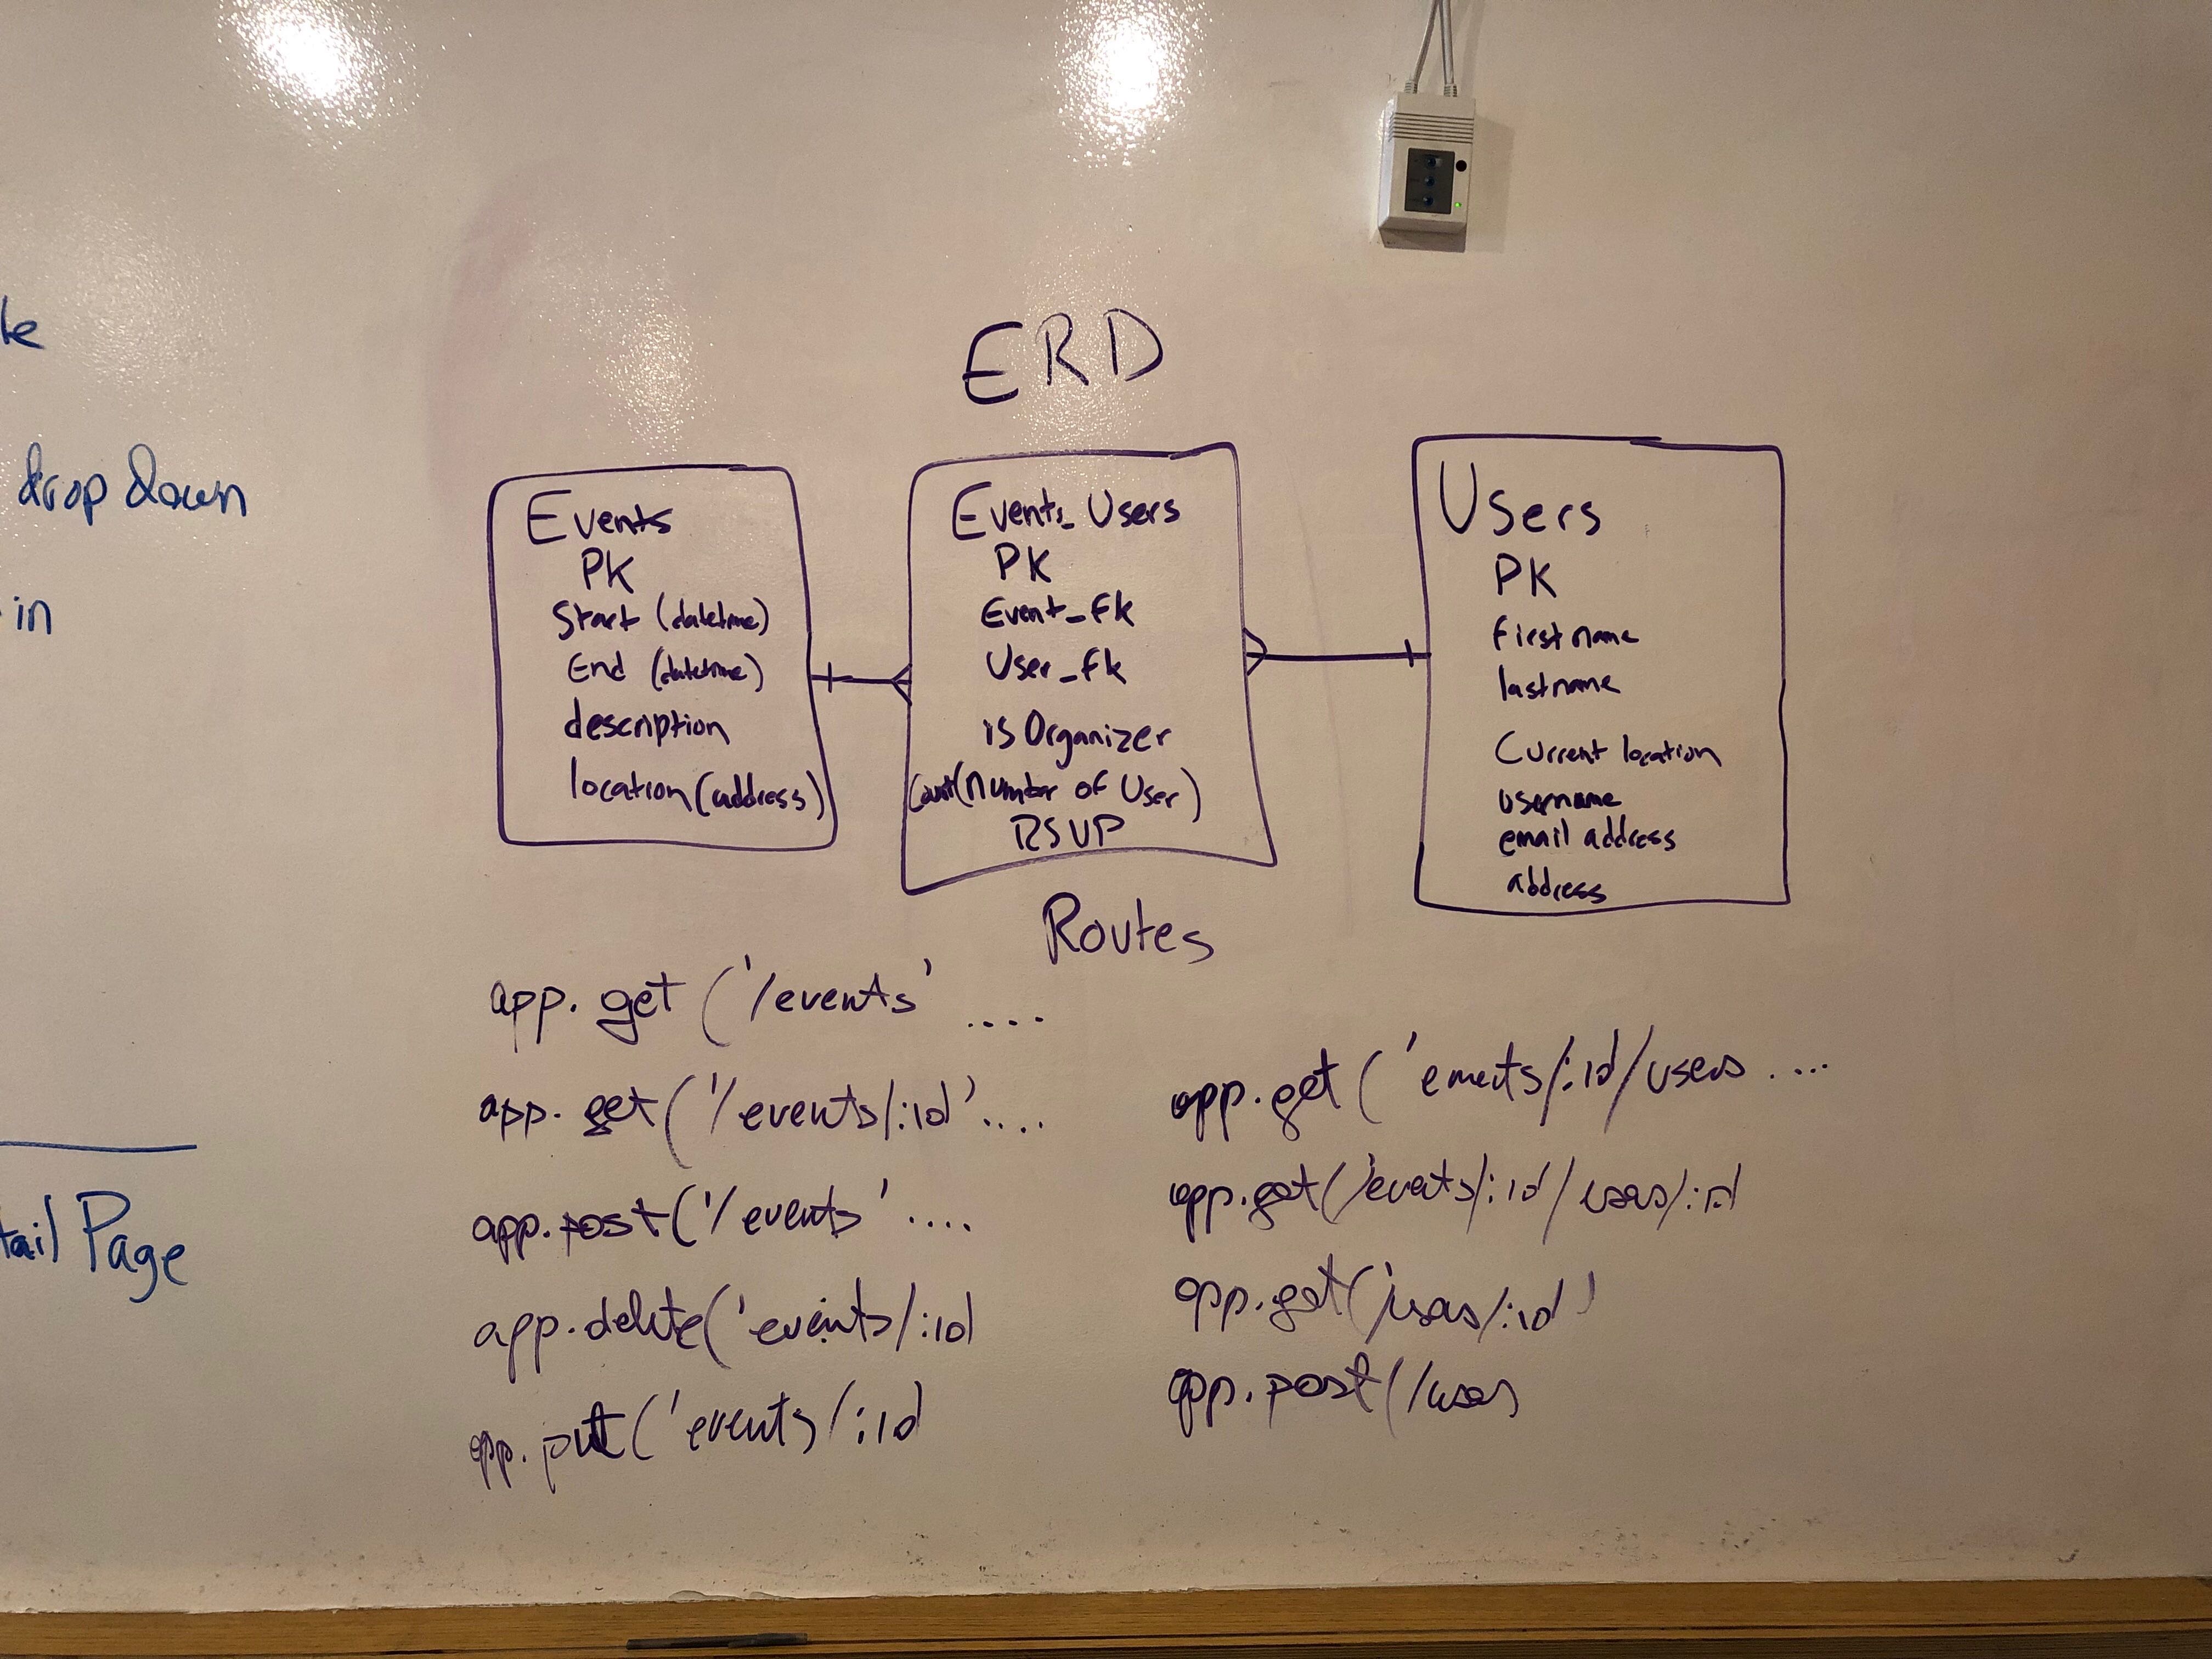 drop down
in
Page
ERD
Events
PK
Start (datetime)
End (datetime)
description
location (address)
Events_Users
PK
Event_fk
User_fk
isOrganizer
Count(number of User)
RSVP
Users
PK
firstname
lastname
Current location
username
email address
address
Routes
app.get('/events' ....
app.get('/events/:id'....
app.post('/events' ....
app.delete('events/:id
app.put('events/:id
app.get('events/:id/users ....
app.get('/events/:id/users/:id
app.get('users/:id'
app.post(/users